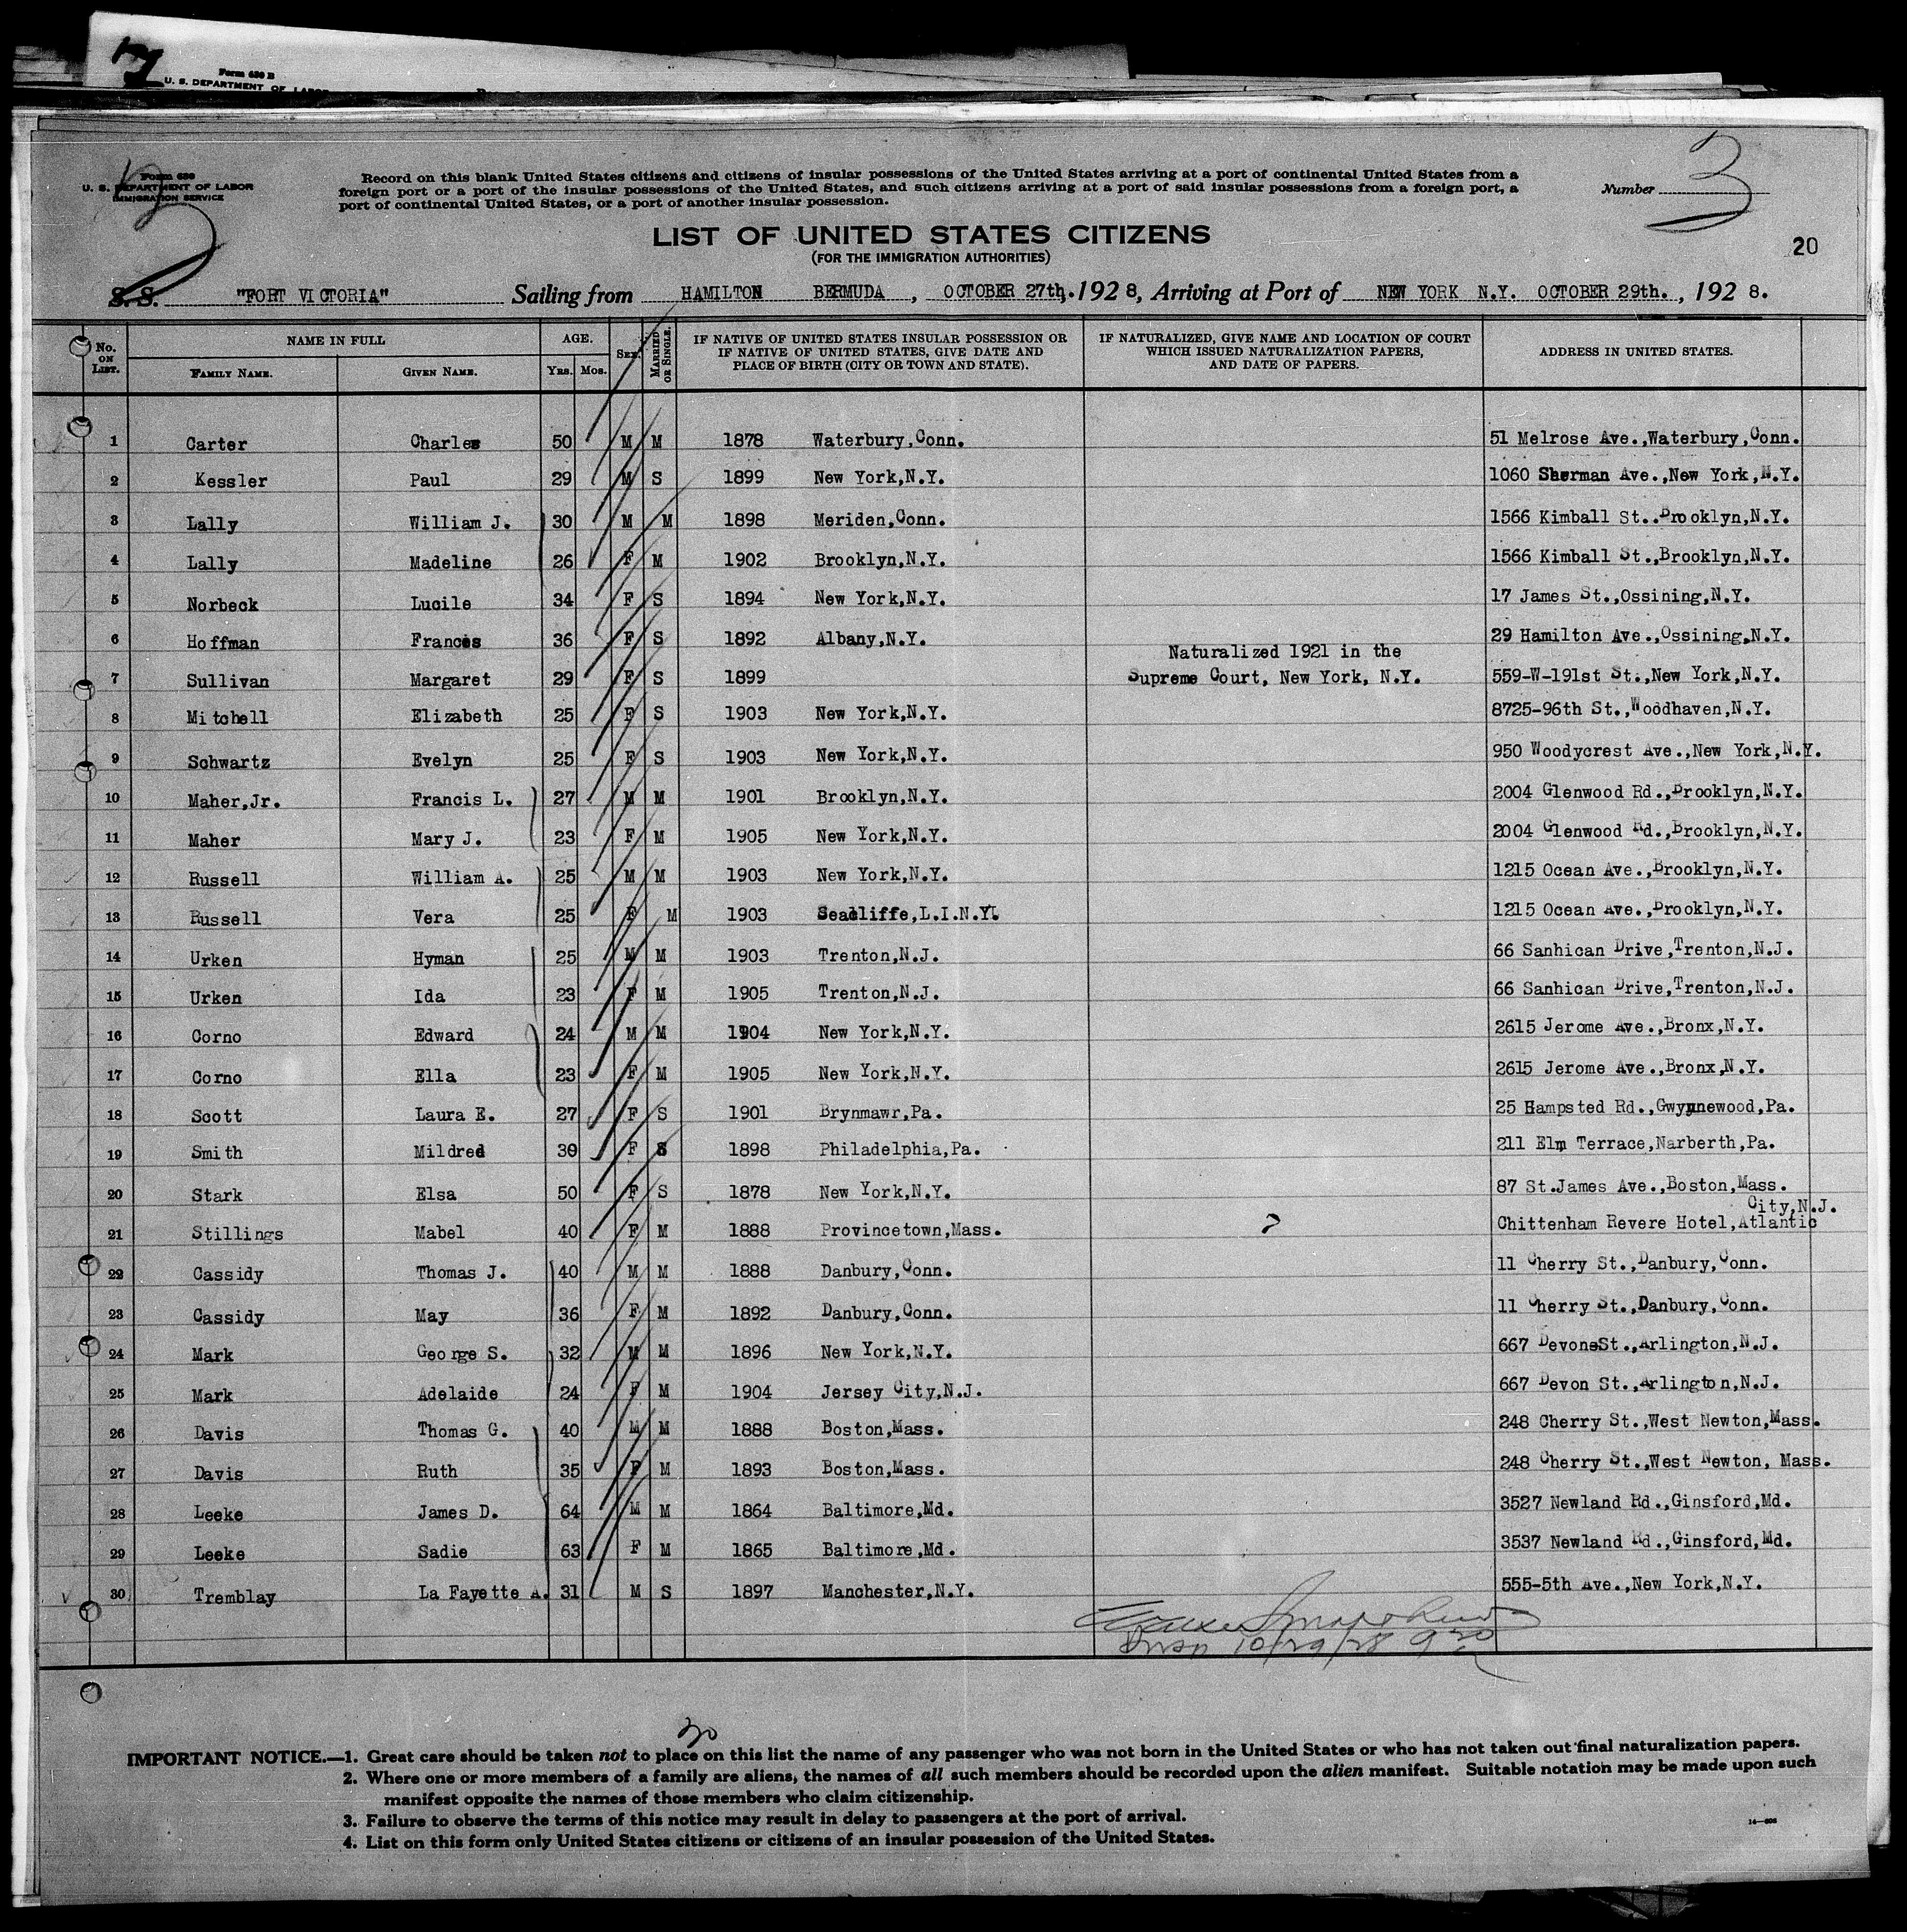 Form 630 B
U. S. DEPARTMENT OF LABOR
Form 630
U. S. DEPARTMENT OF LABOR
IMMIGRATION SERVICE
Record on this blank United States citizens and citizens of insular possessions of the United States arriving at a port of continental United States from a
foreign port or a port of the insular possessions of the United States, and such citizens arriving at a port of said insular possessions from a foreign port, a
port of continental United States, or a port of another insular possession.
Number 3
LIST OF UNITED STATES CITIZENS
(FOR THE IMMIGRATION AUTHORITIES)
20
S. S. "FORT VICTORIA" Sailing from HAMILTON BERMUDA, OCTOBER 27th, 1928, Arriving at Port of NEW YORK N.Y. OCTOBER 29th., 1928.
No. ON LIST. NAME IN FULL FAMILY NAME. GIVEN NAME. AGE. YRS. MOS. SEX. MARRIED OR SINGLE. IF NATIVE OF UNITED STATES INSULAR POSSESSION OR IF NATIVE OF UNITED STATES, GIVE DATE AND PLACE OF BIRTH (CITY OR TOWN AND STATE). IF NATURALIZED, GIVE NAME AND LOCATION OF COURT WHICH ISSUED NATURALIZATION PAPERS, AND DATE OF PAPERS. ADDRESS IN UNITED STATES.
1 Carter Charles 50 M M 1878 Waterbury,Conn. 51 Melrose Ave.,Waterbury,Conn.
2 Kessler Paul 29 M S 1899 New York,N.Y. 1060 Sherman Ave.,New York,N.Y.
3 Lally William J. 30 M M 1898 Meriden,Conn. 1566 Kimball St..Brooklyn,N.Y.
4 Lally Madeline 26 F M 1902 Brooklyn,N.Y. 1566 Kimball St.,Brooklyn,N.Y.
5 Norbeck Lucile 34 F S 1894 New York,N.Y. 17 James St.,Ossining,N.Y.
6 Hoffman Frances 36 F S 1892 Albany,N.Y. 29 Hamilton Ave.,Ossining,N.Y.
Naturalized 1921 in the
7 Sullivan Margaret 29 F S 1899 Supreme Court, New York, N.Y. 559-W-191st St.,New York,N.Y.
8 Mitchell Elizabeth 25 F S 1903 New York,N.Y. 8725-96th St.,Woodhaven,N.Y.
9 Schwartz Evelyn 25 F S 1903 New York,N.Y. 950 Woodycrest Ave.,New York,N.Y.
10 Maher,Jr. Francis L. 27 M M 1901 Brooklyn,N.Y. 2004 Glenwood Rd.,Brooklyn,N.Y.
11 Maher Mary J. 23 F M 1905 New York,N.Y. 2004 Glenwood Rd.,Brooklyn,N.Y.
12 Russell William A. 25 M M 1903 New York,N.Y. 1215 Ocean Ave.,Brooklyn,N.Y.
13 Russell Vera 25 F M 1903 Seacliffe,L.I.N.Y. 1215 Ocean Ave.,Brooklyn,N.Y.
14 Urken Hyman 25 M M 1903 Trenton,N.J. 66 Sanhican Drive,Trenton,N.J.
15 Urken Ida 23 F M 1905 Trenton,N.J. 66 Sanhican Drive,Trenton,N.J.
16 Corno Edward 24 M M 1904 New York,N.Y. 2615 Jerome Ave.,Bronx,N.Y.
17 Corno Ella 23 F M 1905 New York,N.Y. 2615 Jerome Ave.,Bronx,N.Y.
18 Scott Laura E. 27 F S 1901 Brynmawr,Pa. 25 Hampsted Rd.,Gwynnewood,Pa.
19 Smith Mildred 30 F S 1898 Philadelphia,Pa. 211 Elm Terrace,Narberth,Pa.
20 Stark Elsa 50 F S 1878 New York,N.Y. 87 St.James Ave.,Boston,Mass.
City,N.J.
21 Stillings Mabel 40 F M 1888 Provincetown,Mass. ? Chittenham Revere Hotel,Atlantic
22 Cassidy Thomas J. 40 M M 1888 Danbury,Conn. 11 Cherry St.,Danbury,Conn.
23 Cassidy May 36 F M 1892 Danbury,Conn. 11 Cherry St.,Danbury,Conn.
24 Mark George S. 32 M M 1896 New York,N.Y. 667 DevoneSt.,Arlington,N.J.
25 Mark Adelaide 24 F M 1904 Jersey City,N.J. 667 Devon St.,Arlington,N.J.
26 Davis Thomas G. 40 M M 1888 Boston,Mass. 248 Cherry St.,West Newton,Mass.
27 Davis Ruth 35 F M 1893 Boston,Mass. 248 Cherry St.,West Newton, Mass.
28 Leeke James D. 64 M M 1864 Baltimore,Md. 3527 Newland Rd.,Ginsford,Md.
29 Leeke Sadie 63 F M 1865 Baltimore,Md. 3537 Newland Rd.,Ginsford,Md.
30 Tremblay La Fayette A. 31 M S 1897 Manchester,N.Y. 555-5th Ave.,New York,N.Y.
10/29/28 9 30
30
IMPORTANT NOTICE.—1. Great care should be taken not to place on this list the name of any passenger who was not born in the United States or who has not taken out final naturalization papers.
2. Where one or more members of a family are aliens, the names of all such members should be recorded upon the alien manifest. Suitable notation may be made upon such
manifest opposite the names of those members who claim citizenship.
3. Failure to observe the terms of this notice may result in delay to passengers at the port of arrival.
4. List on this form only United States citizens or citizens of an insular possession of the United States.